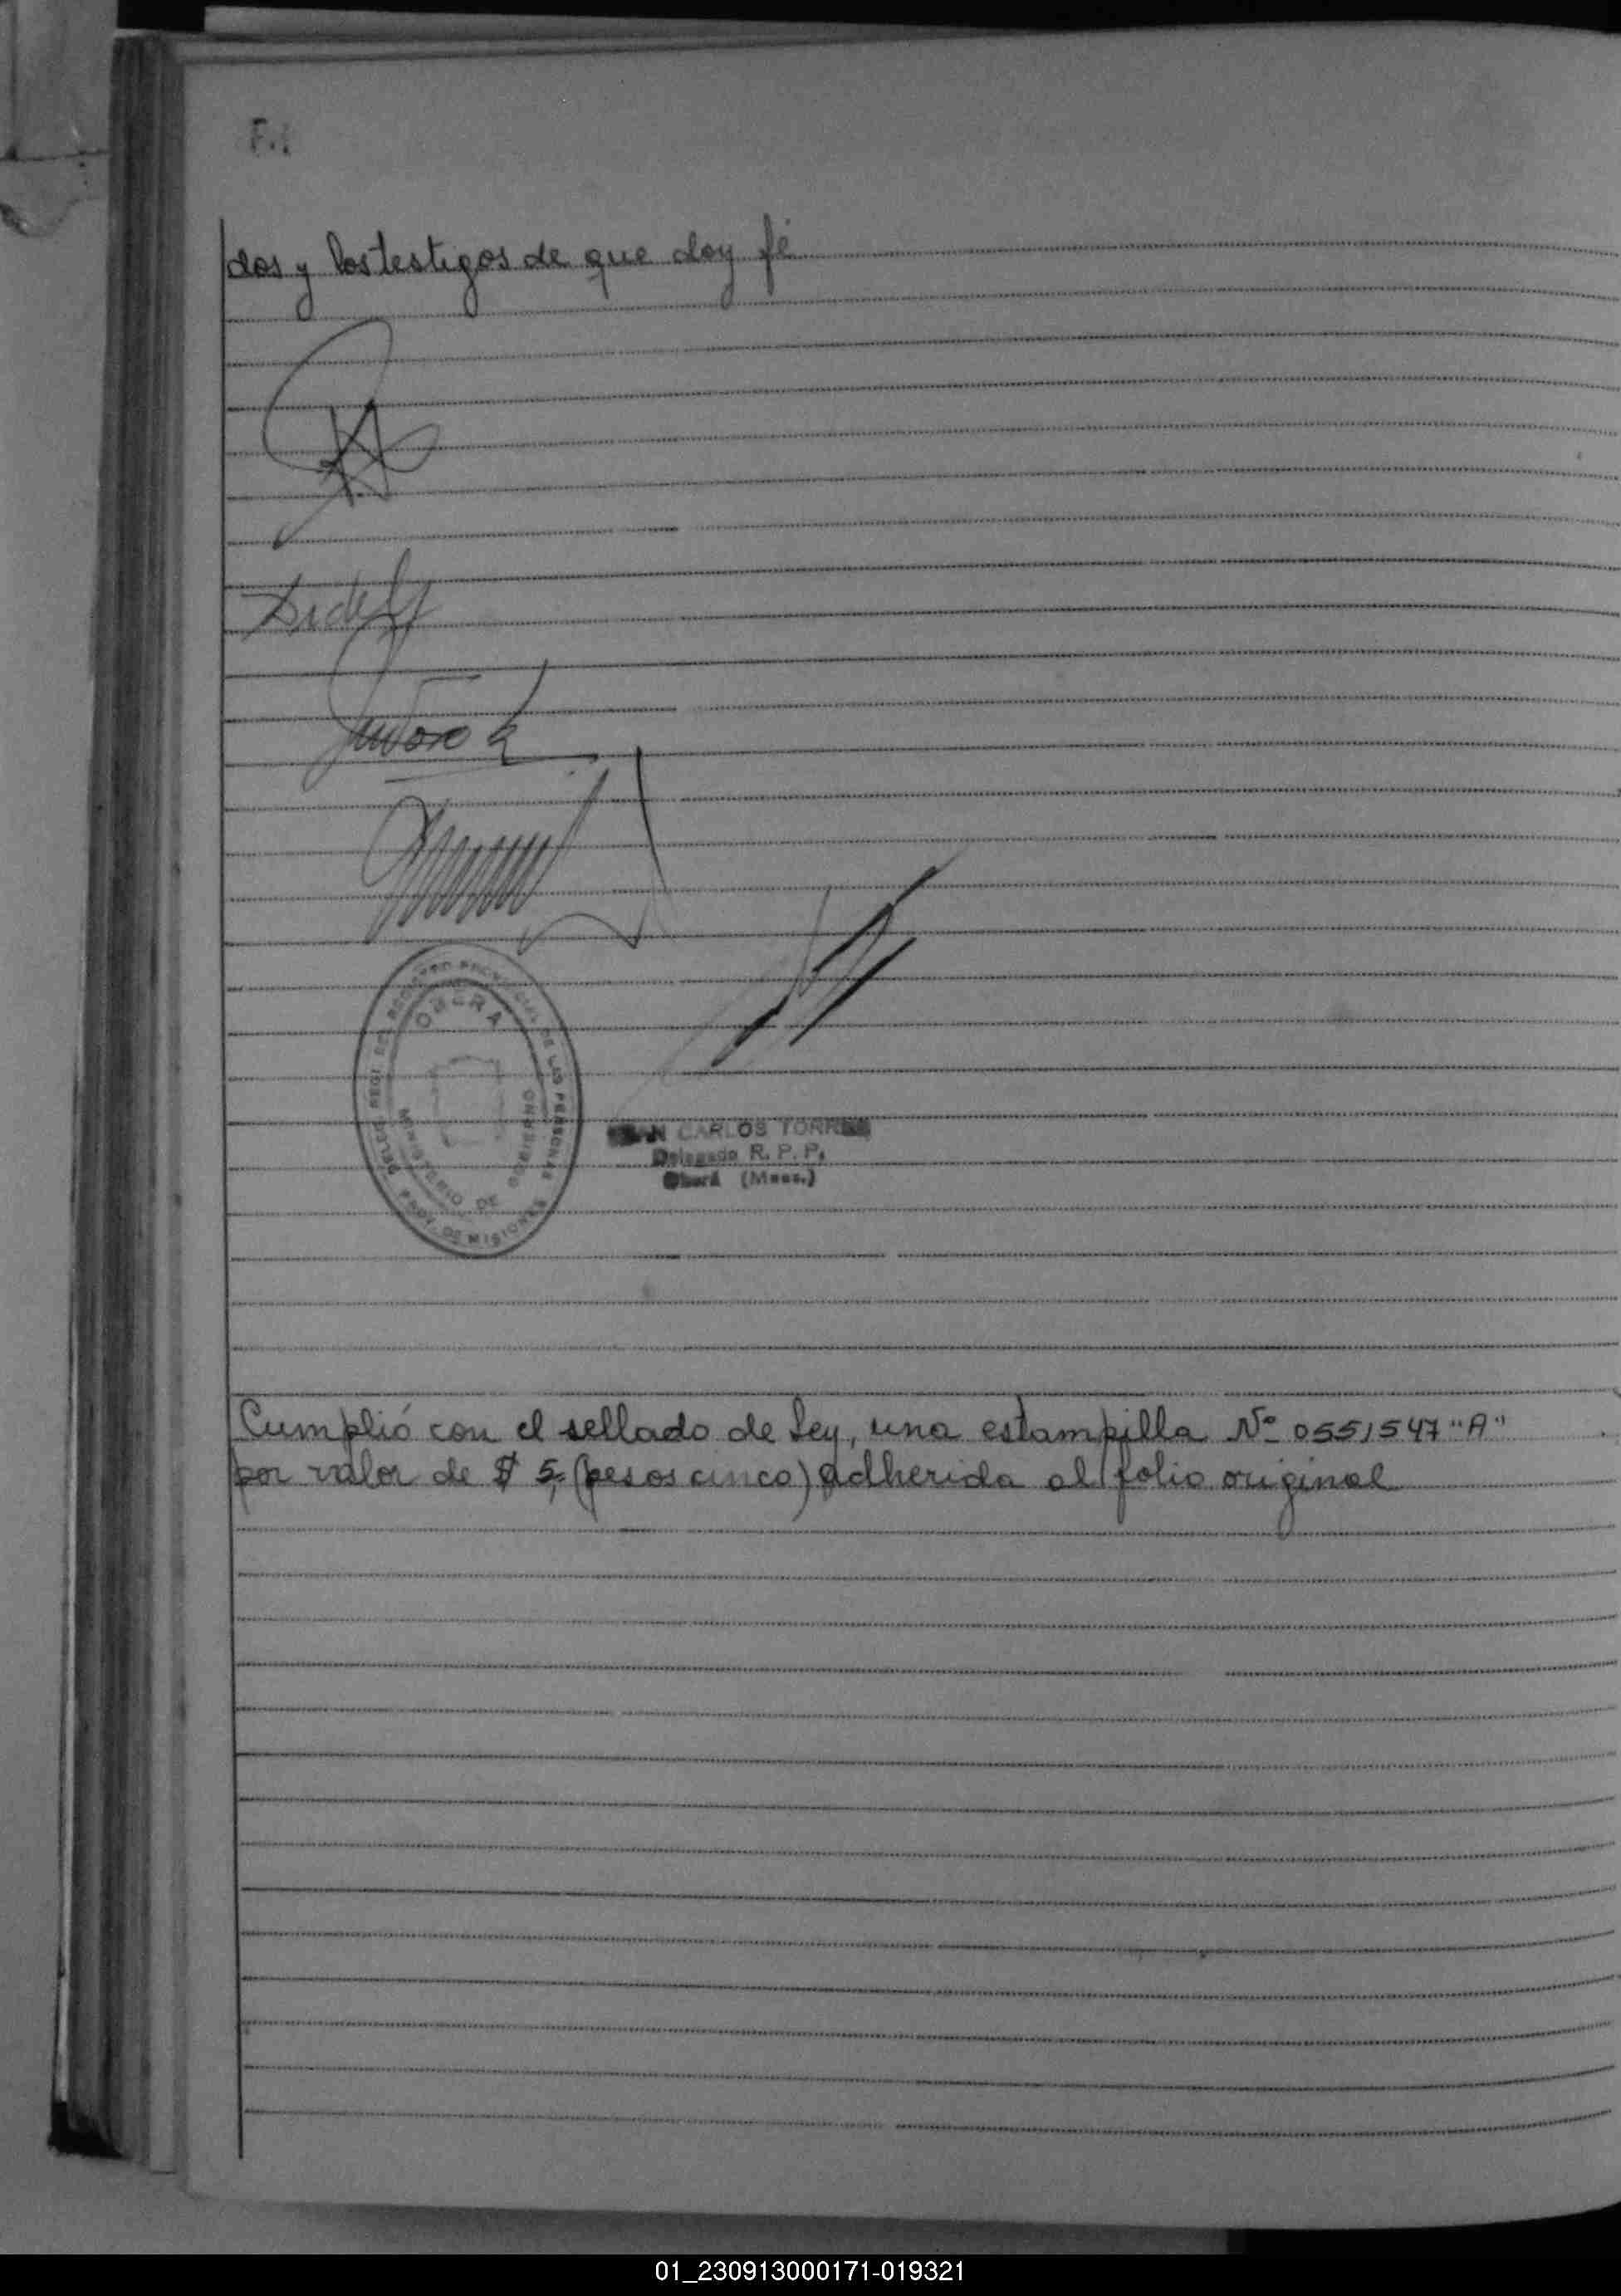 F.1
dos y los testigos de que doy fé
OBERA
MINISTERIO DE GOBIERNO
PROV. DE MISIONES
JUAN CARLOS TORRES
Delegado R. P. P.
Oberá (Mnes.)
Cumplió con el sellado de Ley, una estampilla Nº 0551547 "A"
por valor de $ 5,= (pesos cinco) adherida al folio original
01_230913000171-019321